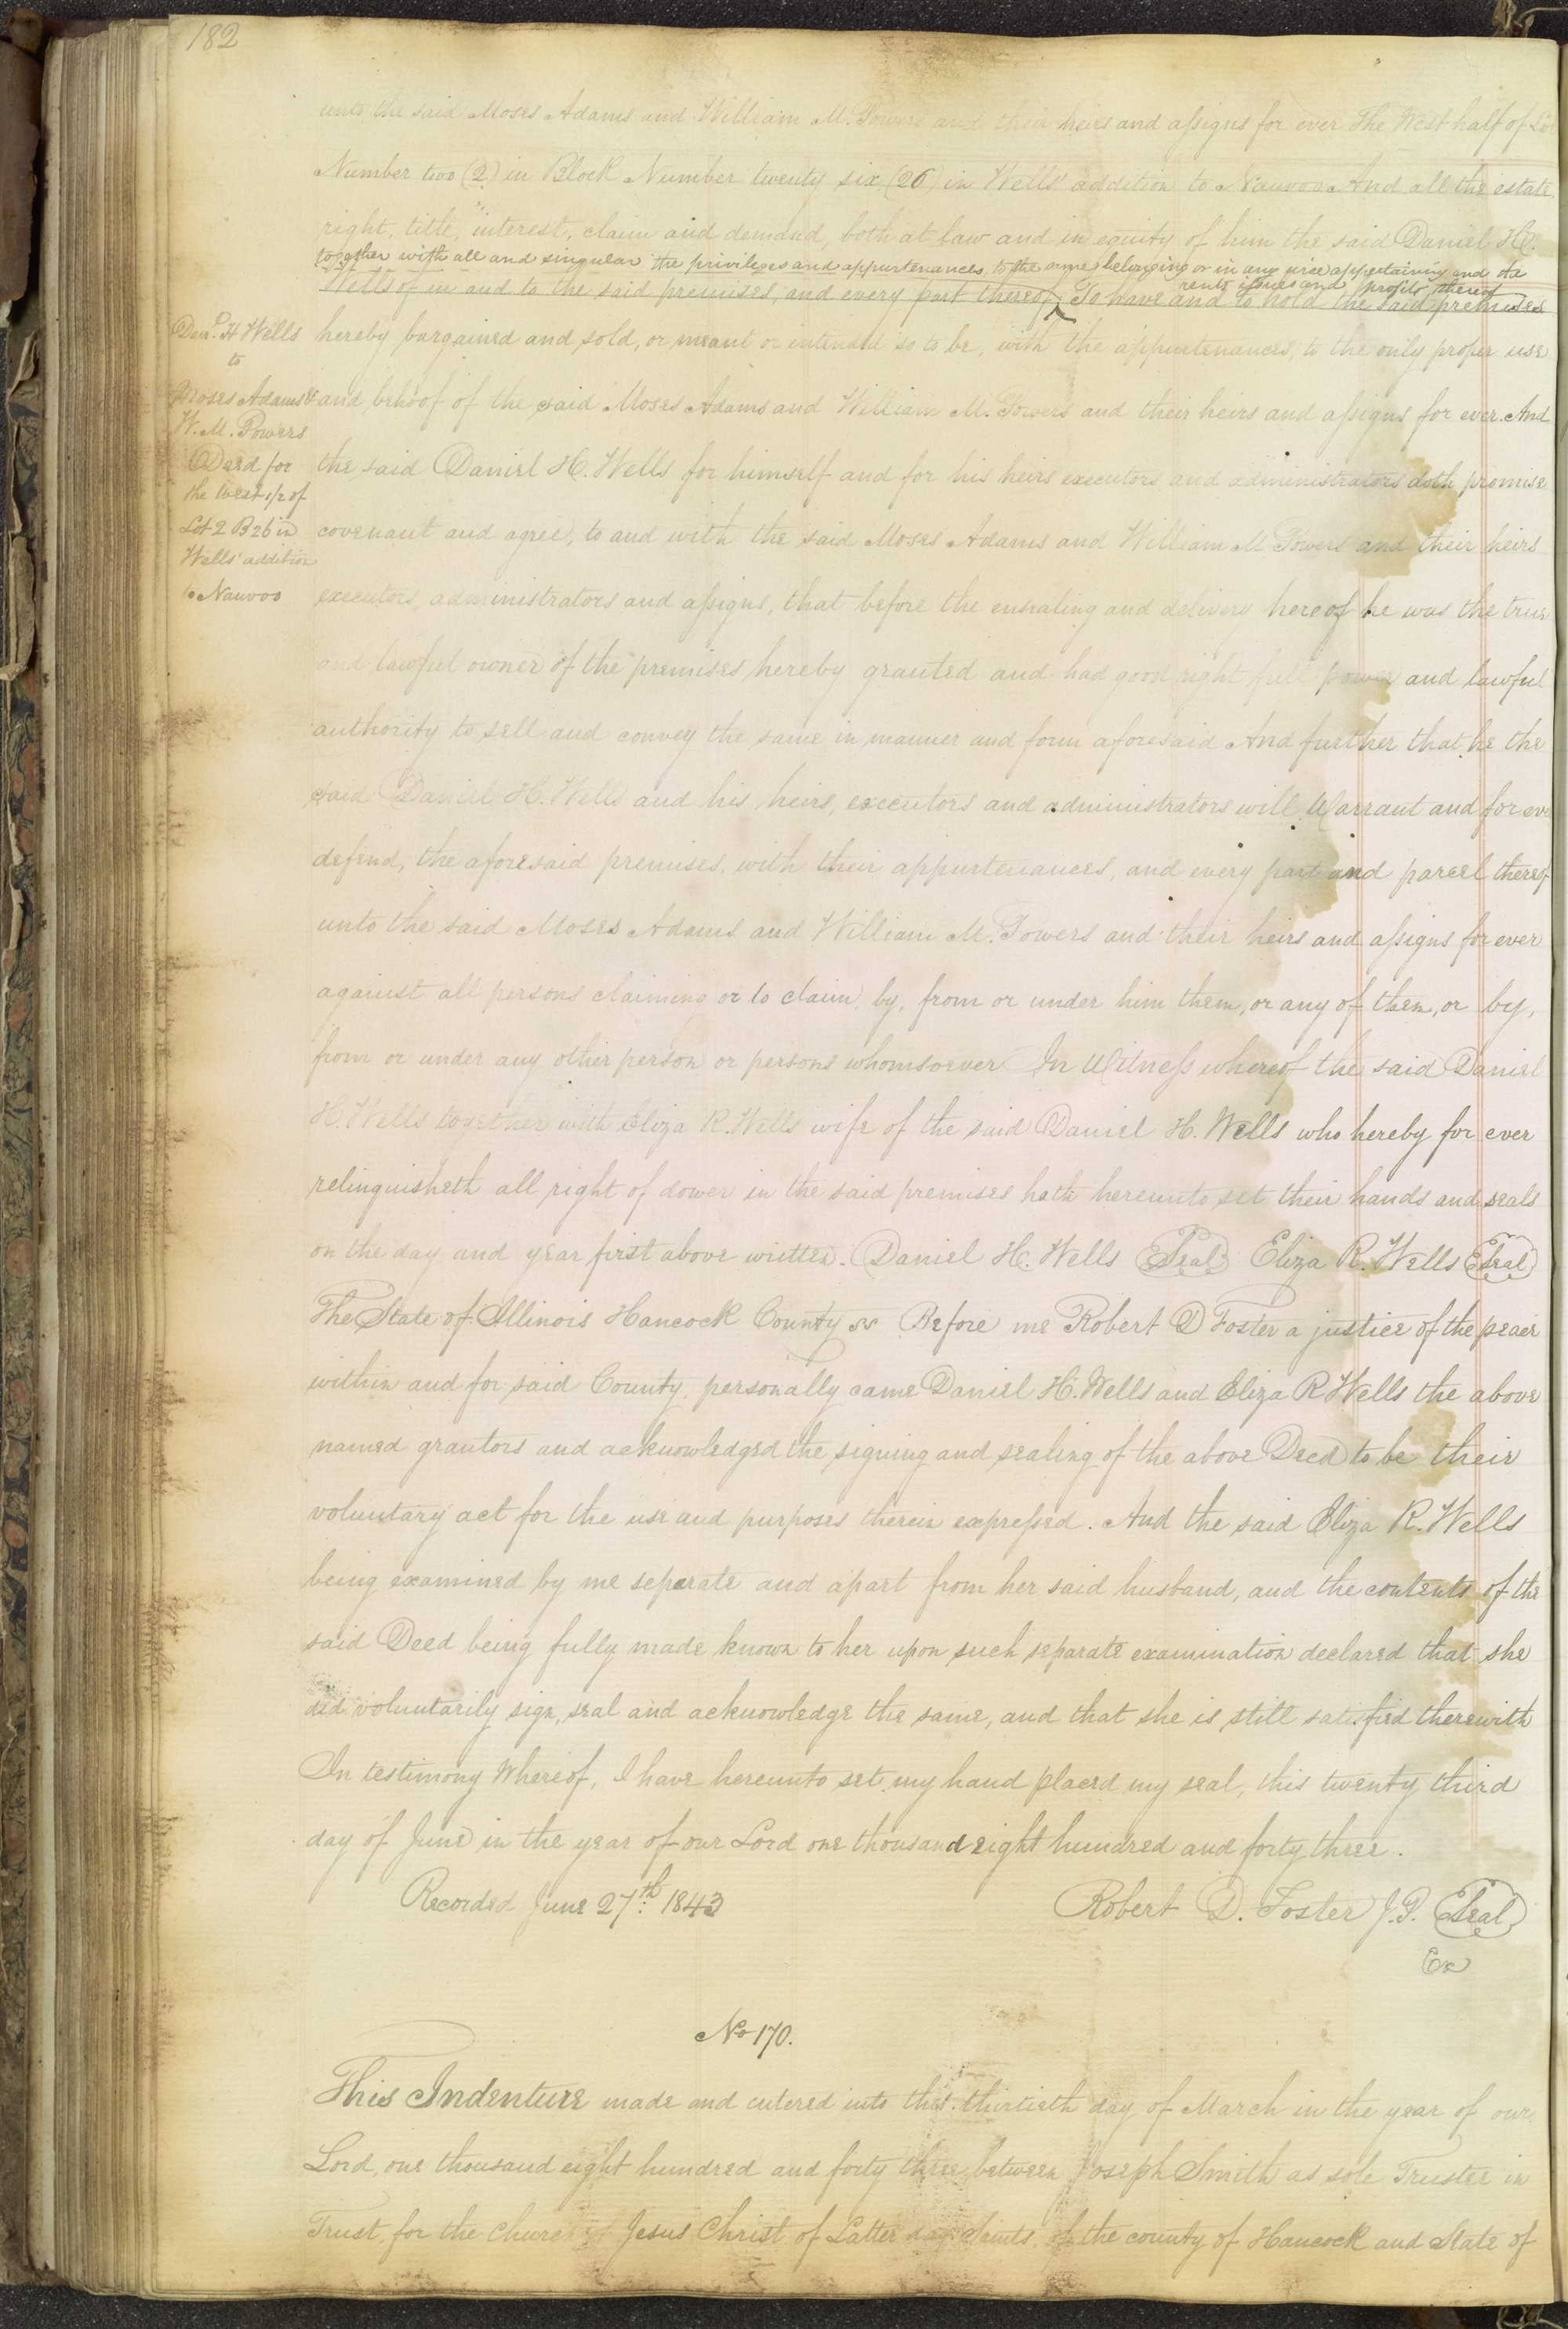 182
unto the said Moses Adams and William M. Powers and their heirs and assigns for ever The West half of Lo
Number two (2) in Block Number twenty six (26) in Wells' addition to Nauvoo And all the estate,
right, title, interest, claim and demand, both at law and in equity of him the said Daniel H.
together with all and singular the privileges and appurtenances, to the same belonging or in any wise appertaining and the
rents issues and profits thereof
Wells of in and to the said premises, and every part thereof, To have and to hold the said premises
Danl. H Wells
to
Moses Adams &
W. M. Powers
Deed for
the West 1/2 of
Lot 2 B 26 in
Wells' addition
to Nauvoo
hereby bargained and sold, or meant or intended so to be, with the appurtenances, to the only proper use
and behoof of the said Moses Adams and William M. Powers and their heirs and assigns for ever. And
the said Daniel H. Wells for himself and for his heirs executors and administrators doth promise
covenant and agree, to and with the said Moses Adams and William M Powers and their heirs
executors, administrators and assigns, that before the ensealing and delivery hereof he was the true
and lawful owner of the premises hereby granted and had good right full power and lawful
authority to sell and convey the same in manner and form aforesaid And further that he the
said Daniel H. Wells and his heirs, executors and administrators will Warrant and for eve
defend, the aforesaid premises, with their appurtenances, and every part and parcel thereof
unto the said Moses Adams and William M. Powers and their heirs and assigns for ever
against all persons claiming or to claim, by, from or under him them, or any of them, or by,
from or under any other person or persons whomsoever In Witness whereof the said Daniel
H. Wells together with Eliza R. Wells wife of the said Daniel H. Wells who hereby for ever
relinquisheth all right of dower in the said premises hath hereunto set their hands and seals
on the day and year first above written. Daniel H. Wells Seal Eliza R. Wells Seal
The State of Illinois Hancock County ss Before me Robert D Foster a justice of the peace
within and for said County, personally came Daniel H. Wells and Eliza R Wells the above
named grantors and acknowledged the signing and sealing of the above Deed to be their
voluntary act for the use and purposes therein expressed. And the said Eliza R. Wells
being examined by me seperate and apart from her said husband, and the contents of the
said Deed being fully made known to her upon such separate examination declared that she
did voluntarily sign, seal and acknowledge the same, and that she is still satisfied therewith
In testimony Whereof, I have hereunto set my hand placed my seal, this twenty third
day of June in the year of our Lord one thousand eight hundred and forty three.
Recorded June 27th 1843
Robert D. Foster J.P. Seal
Ex
No 170.
This Indenture made and entered into this thirtieth day of March in the year of our
Lord, one thousand eight hundred and forty three, between Joseph Smith as sole Trustee in
Trust, for the Church of Jesus Christ of Latter day Saints, of the county of Hancock and State of